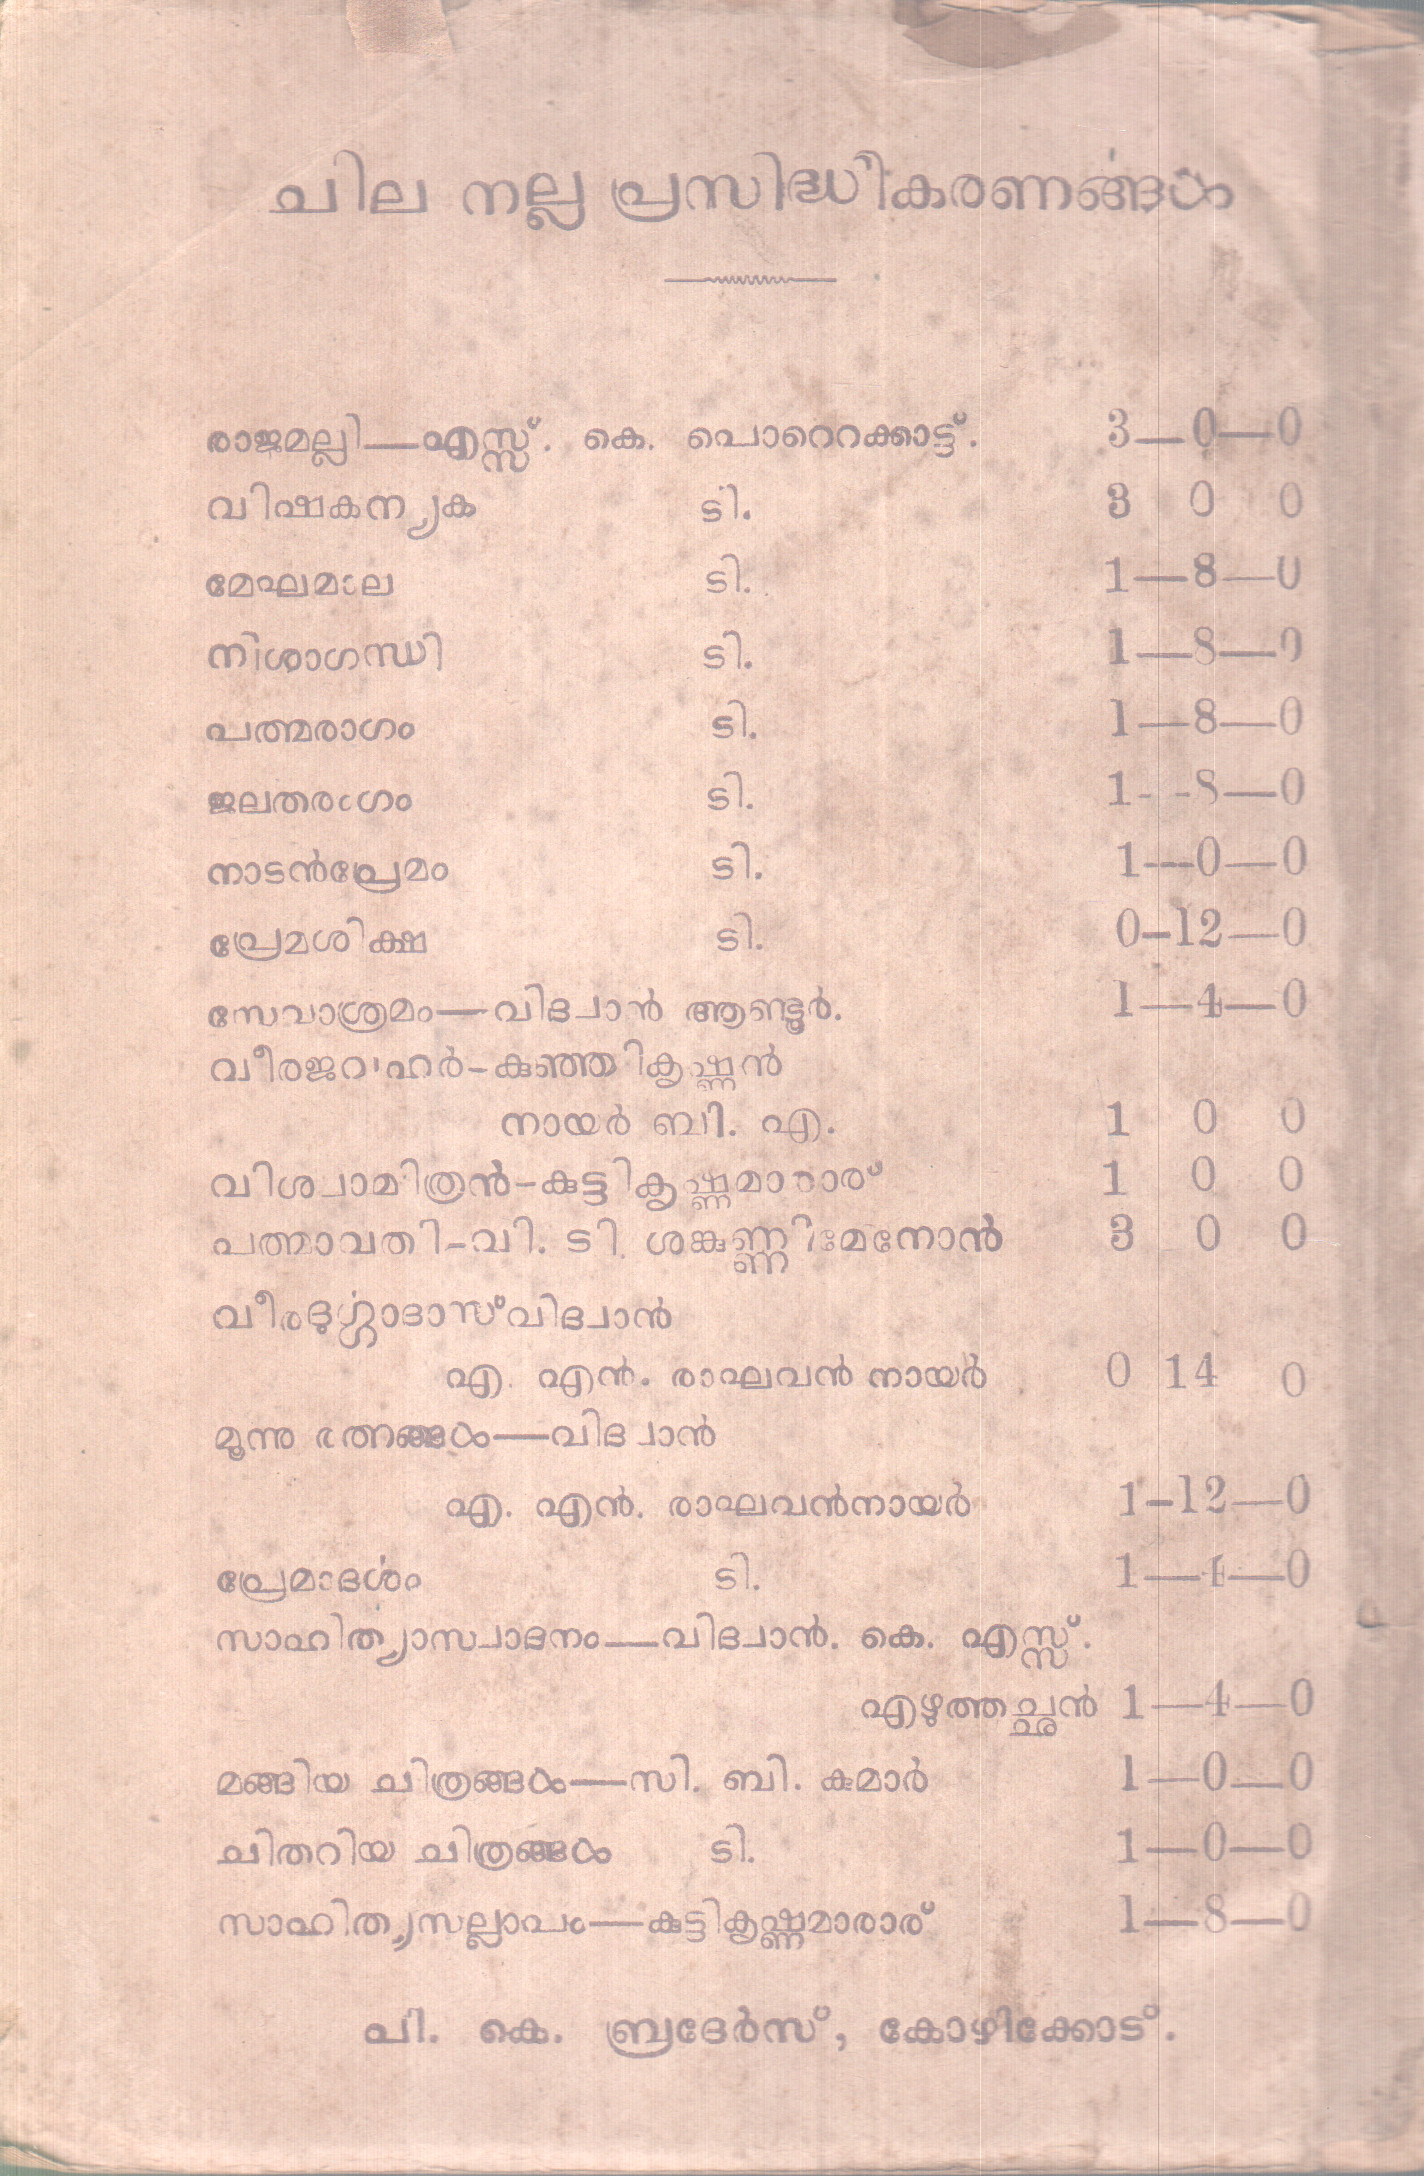 ചില നല്ല പ്രസിദ്ധീകരണങ്ങൾ
രാജമല്ലി—എസ്സ്. കെ. പൊറെറക്കാട്ട്. 3—0—0
വിഷകന്യക ടി. 3 0 0
മേഘമാല ടി. 1—8—0
നിശാഗന്ധി ടി. 1—8—0
പത്മരാഗം ടി. 1—8—0
ജലതരംഗം ടി. 1--8—0
നാടൻപ്രേമം ടി. 1—0—0
പ്രേമശിക്ഷ ടി. 0-12—0
സേവാശ്രമം—വിദ്വാൻ ആണ്ടൂർ. 1—4—0
വീരജവാഹർ-കുഞ്ഞികൃഷ്ണൻ
നായർ ബി. എ. 1 0 0
വിശ്വാമിത്രൻ-കുട്ടികൃഷ്ണമാരാര് 1 0 0
പത്മാവതി-വി. ടി. ശങ്കുണ്ണിമേനോൻ 3 0 0
വീരദുർഗ്ഗാദാസ് വിദ്വാൻ
എ. എൻ. രാഘവൻ നായർ 0 14 0
മൂന്നു രത്നങ്ങൾ—വിദ്വാൻ
എ. എൻ. രാഘവൻനായർ 1-12—0
പ്രേമാദർശം ടി. 1—4—0
സാഹിത്യാസ്വാദനം—വിദ്വാൻ. കെ. എസ്സ്.
എഴുത്തച്ഛൻ 1—4—0
മങ്ങിയ ചിത്രങ്ങൾ—സി. ബി. കുമാർ 1—0—0
ചിതറിയ ചിത്രങ്ങൾ ടി. 1—0—0
സാഹിത്യസല്ലാപം—കുട്ടികൃഷ്ണമാരാര് 1—8—0
പി. കെ. ബ്രദേർസ്, കോഴിക്കോട്.